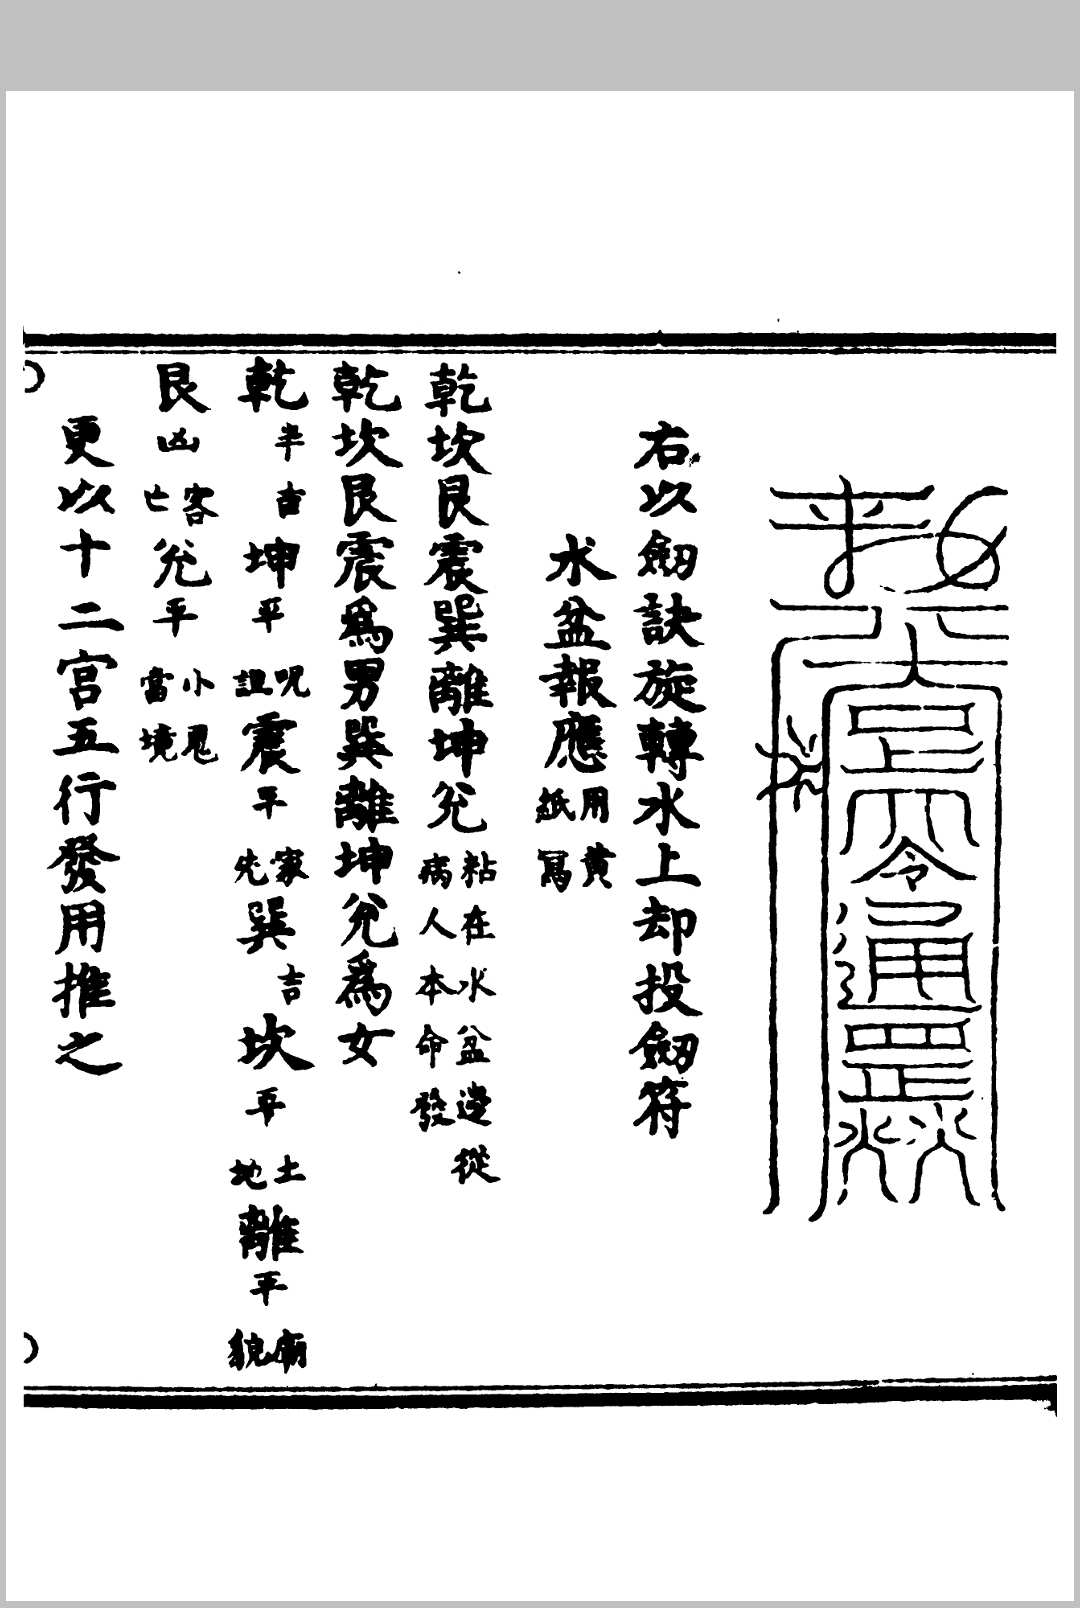 右以劒訣旋轉水上却投劒符
水盆報應用黄紙冩
乾坎艮震巽離坤兊粘在水盆邊從病人本命發
乾坎艮震爲男巽離坤兊爲女
乾半吉坤平呪詛震平家先巽吉坎平土地離平廟貌
艮凶客亡兊平小鬼當境
更以十二宮五行發用推之